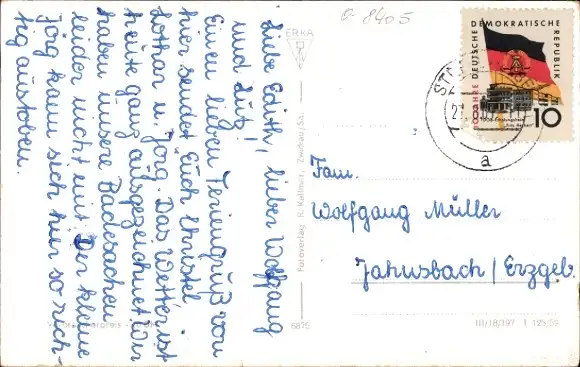 liebe Edith, lieber Wolfgang
und Lutz!
Einen lieben Feriengruß von
hier sendet Euch Christel
Lothar u. Jörg. Das Wetter ist
heute ganz ausgezeichnet. Wir
haben unsere Badesachen
leider nicht mit. Der kleine
Jörg kann sich hier so rich-
tig austoben.
8405
ERKA
10 JAHRE DEUTSCHE DEMOKRATISCHE REPUBLIK
10
a
Fam.
Wolfgang Müller
Jahnsbach/Erzgeb.
Fotoverlag R. Kallmer, Zwickau/Sa.
6875
III/18/197 1 125/59